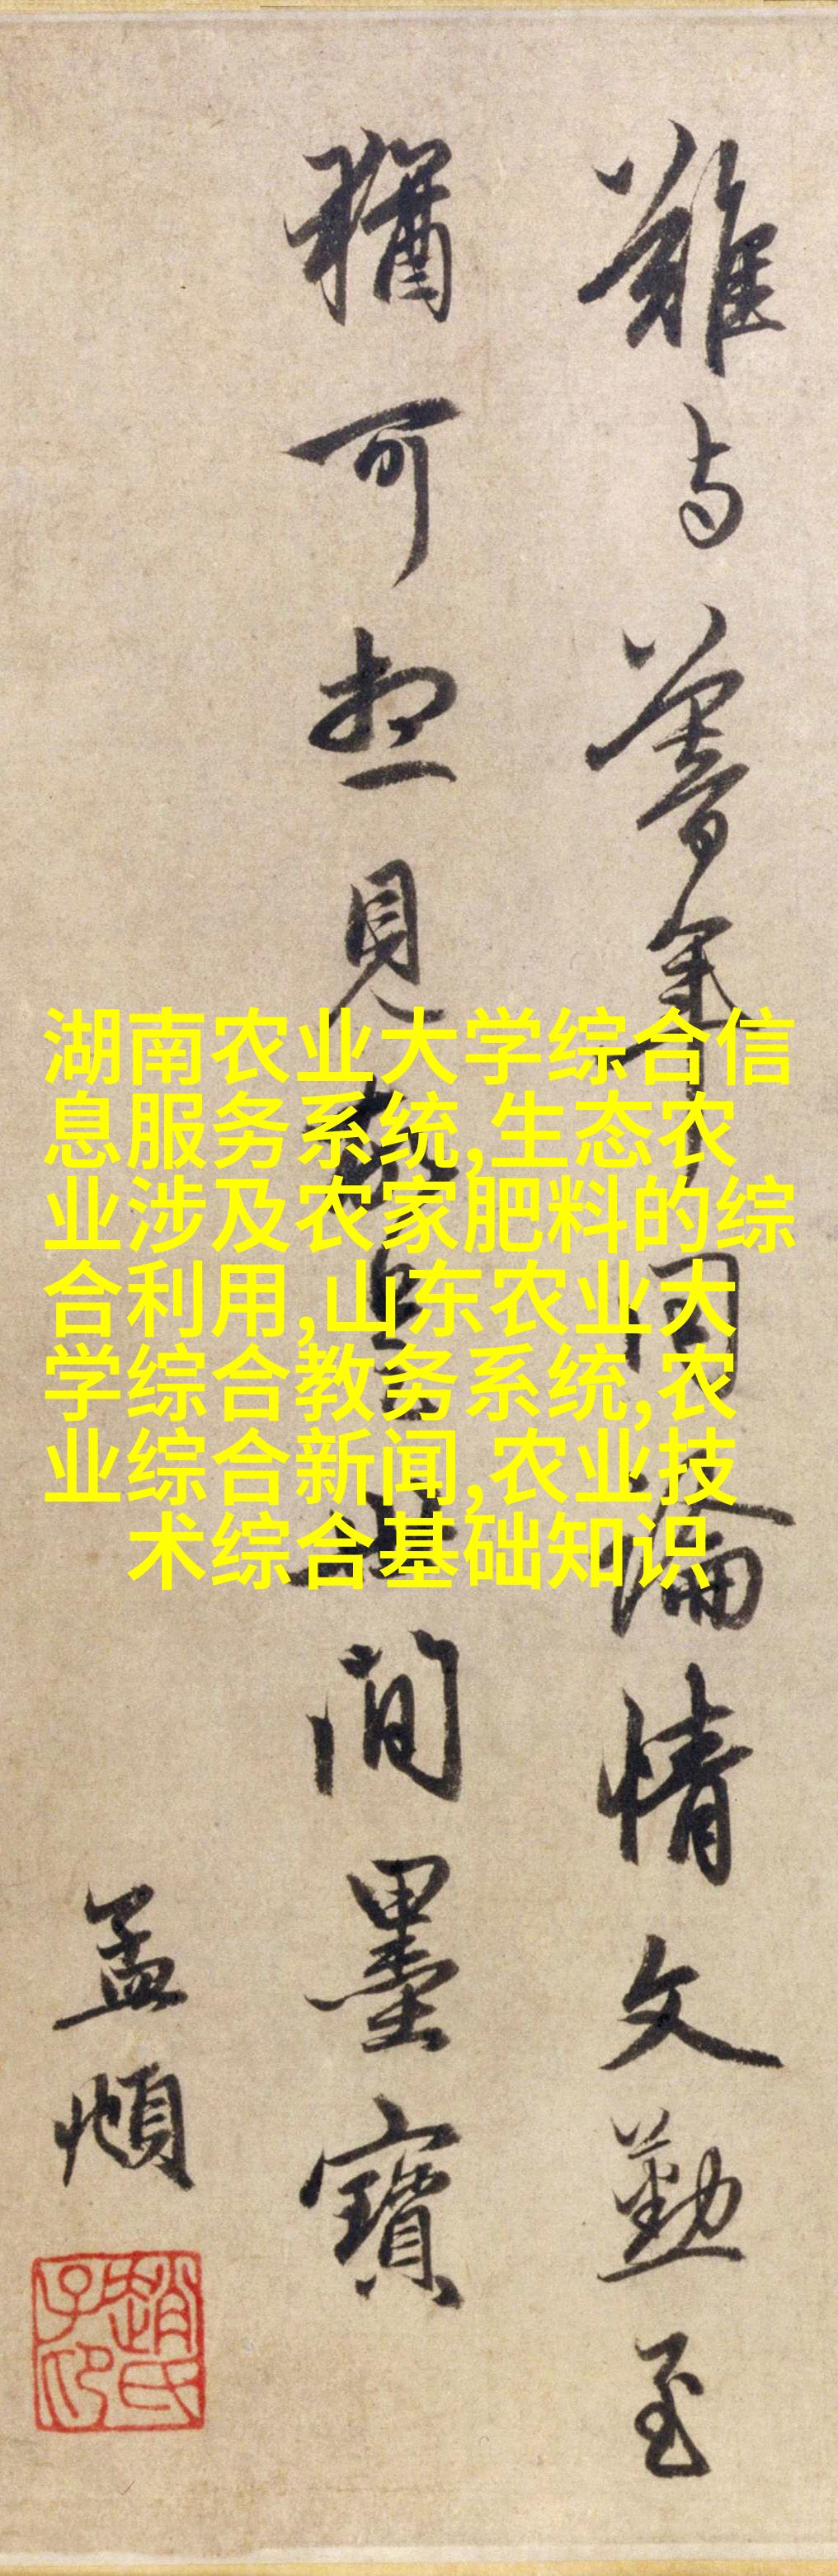 难与暮年同論情文勤至
猶可想見故是世間墨寶
孟頫
趙氏子昂
湖南农业大学综合信
息服务系统,生态农
业涉及农家肥料的综
合利用,山东农业大
学综合教务系统,农
业综合新闻,农业技
术综合基础知识